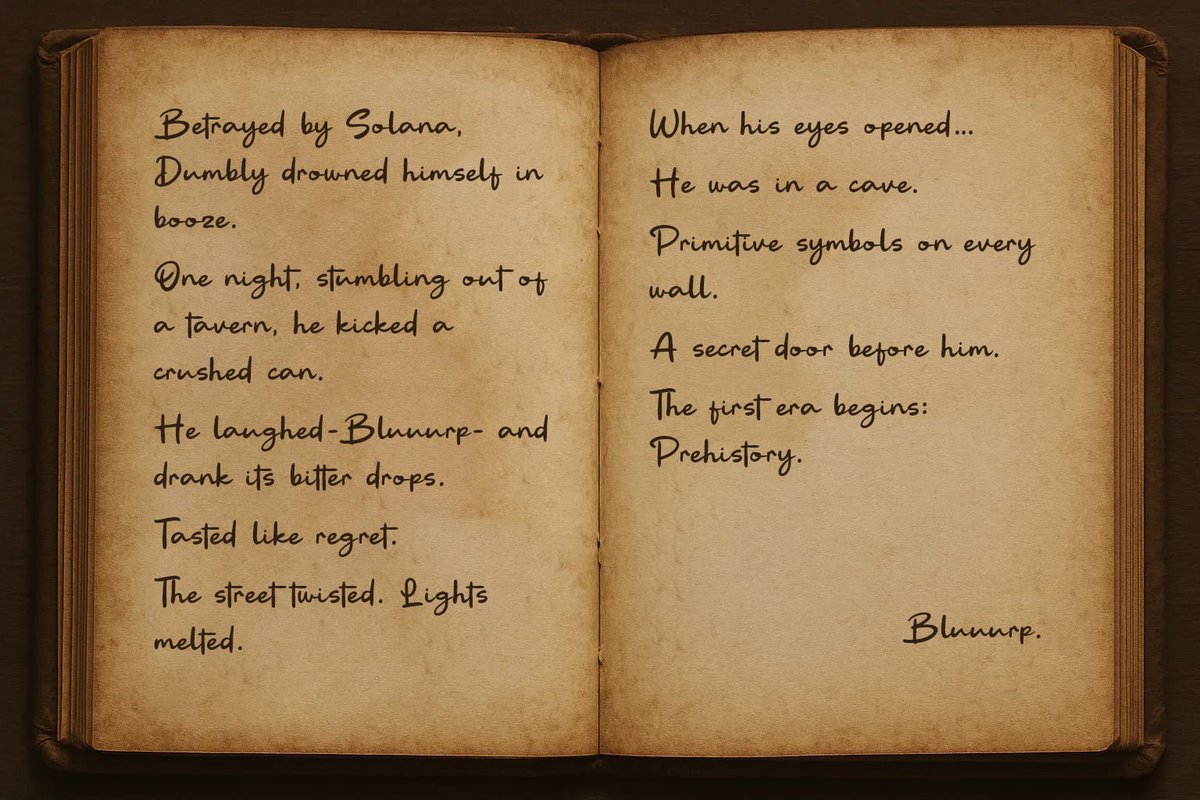 Betrayed by Solana,
Dumbly drowned himself in
booze.
One night, stumbling out of
a tavern, he kicked a
crushed can.
He laughed-Bluuurp- and
drank its bitter drops.
Tasted like regret.
The street twisted. Lights
melted.
When his eyes opened...
He was in a cave.
Primitive symbols on every
wall.
A secret door before him.
The first era begins:
Prehistory.
Bluuurp.